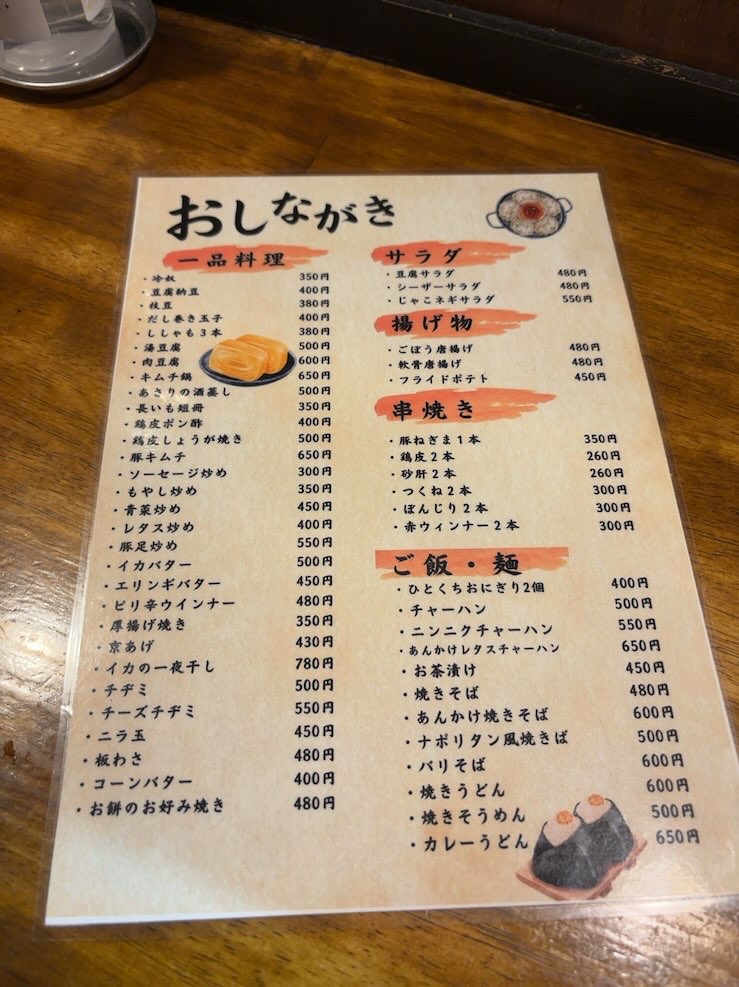 おしながき
一品料理
・冷奴 350円
・豆腐納豆 400円
・枝豆 380円
・だし巻き玉子 400円
・ししゃも3本 380円
・湯豆腐 500円
・肉豆腐 600円
・キムチ鍋 650円
・あさりの酒蒸し 500円
・長いも短冊 350円
・鶏皮ポン酢 400円
・鶏皮しょうが焼き 500円
・豚キムチ 650円
・ソーセージ炒め 300円
・もやし炒め 350円
・青菜炒め 450円
・レタス炒め 400円
・豚足炒め 550円
・イカバター 500円
・エリンギバター 450円
・ピリ辛ウインナー 480円
・厚揚げ焼き 350円
・京あげ 430円
・イカの一夜干し 780円
・チヂミ 500円
・チーズチヂミ 550円
・ニラ玉 450円
・板わさ 480円
・コーンバター 400円
・お餅のお好み焼き 480円
サラダ
・豆腐サラダ 480円
・シーザーサラダ 480円
・じゃこネギサラダ 550円
揚げ物
・ごぼう唐揚げ 480円
・軟骨唐揚げ 480円
・フライドポテト 450円
串焼き
・豚ねぎま1本 350円
・鶏皮2本 260円
・砂肝2本 260円
・つくね2本 300円
・ぼんじり2本 300円
・赤ウィンナー2本 300円
ご飯・麺
・ひとくちおにぎり2個 400円
・チャーハン 500円
・ニンニクチャーハン 550円
・あんかけレタスチャーハン 650円
・お茶漬け 450円
・焼きそば 480円
・あんかけ焼きそば 600円
・ナポリタン風焼きば 500円
・バリそば 600円
・焼きうどん 600円
・焼きそうめん 500円
・カレーうどん 650円